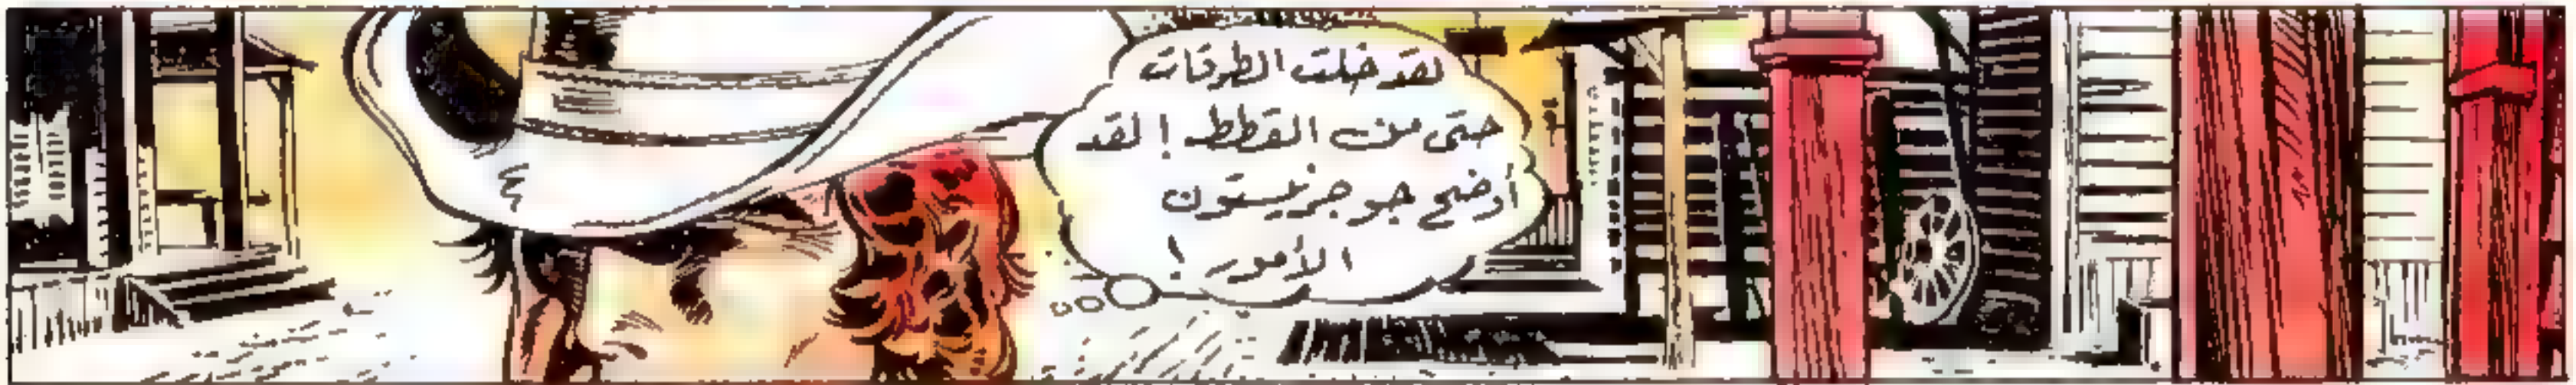 لقد خلت الطرقات
حتى من القطط ! لقد
أوضح جو جزيستون
الأمور !